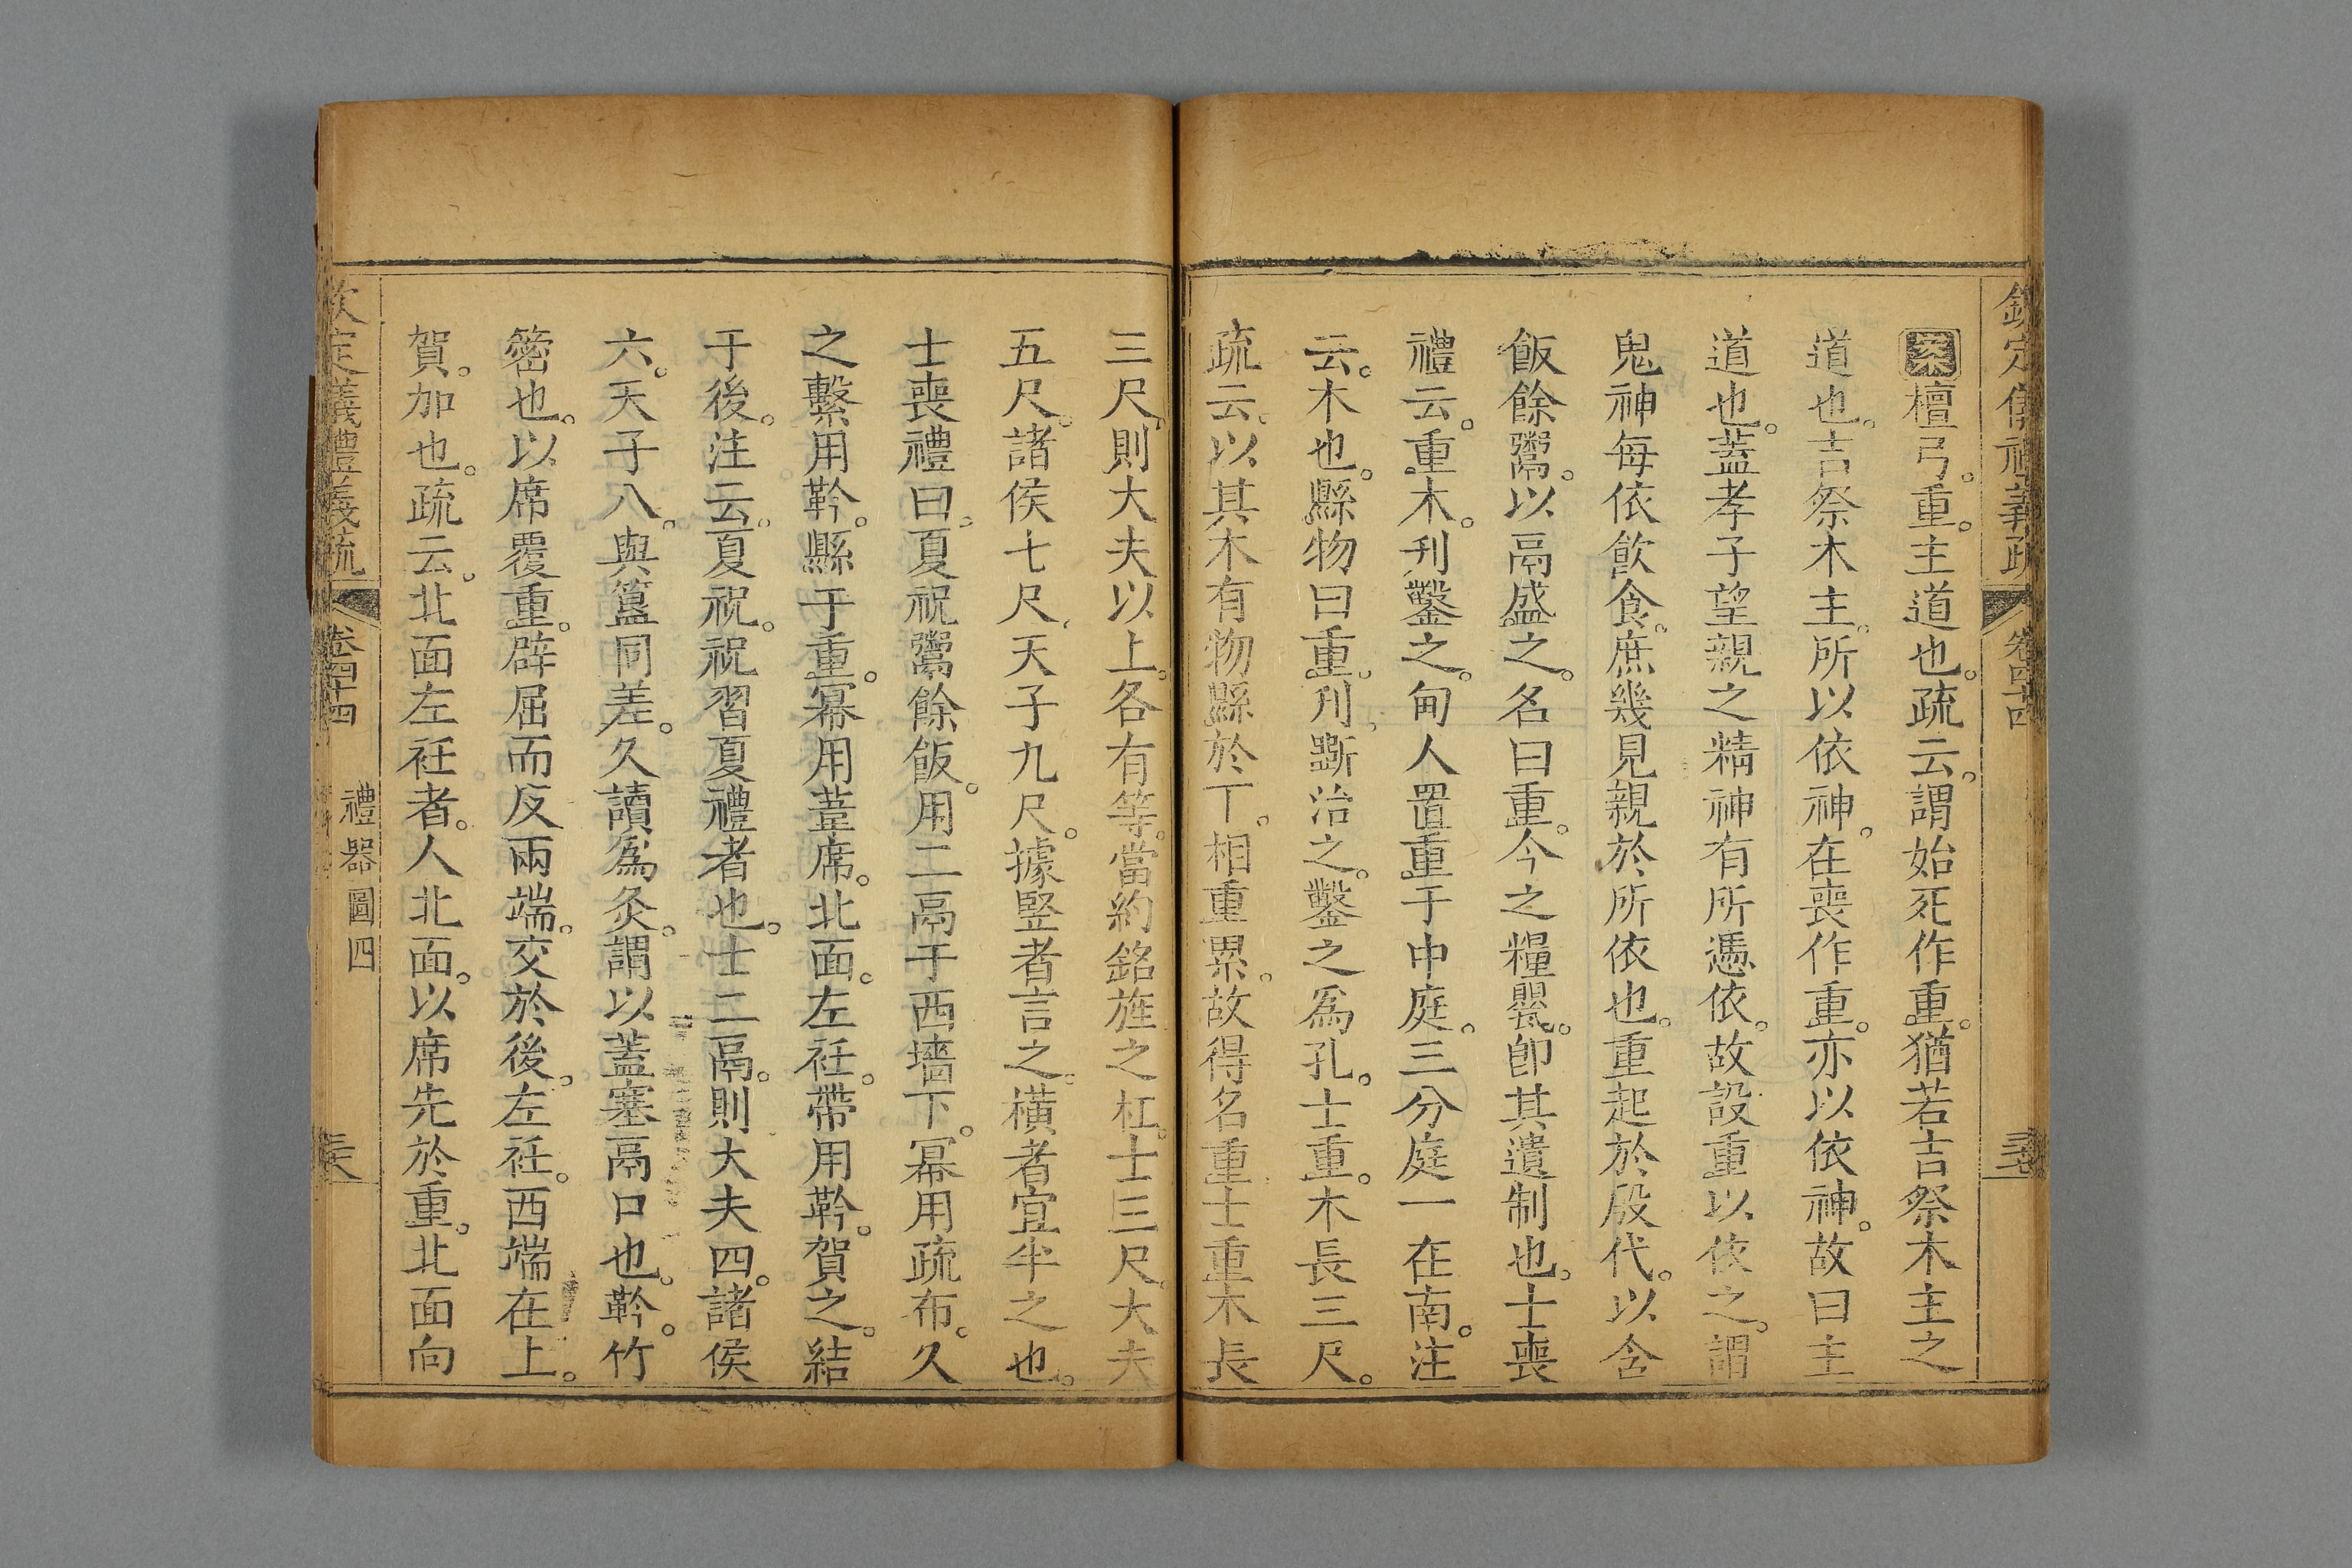 欽定儀禮義疏 卷四十四
案檀弓。重。主道也。疏云。謂始死作重。猶若吉祭木主之
道也。吉祭木主。所以依神。在喪作重。亦以依神。故曰主
道也。蓋孝子望親之精神有所憑依。故設重以依之。謂
鬼神每依飲食。庶幾見親於所依也。重起於殷代。以含
飯餘鬻。以鬲盛之。名曰重。今之糧罌。卽其遺制也。士喪
禮云。重木。刋鑿之。甸人置重于中庭。三分庭一在南。注
云。木也。縣物曰重。刋。斲治之。鑿之爲孔。士重。木長三尺。
疏云。以其木有物縣於下。相重累。故得名重。士重木長
三尺。則大夫以上。各有等。當約銘旌之杠。士三尺。大夫
五尺。諸侯七尺。天子九尺。據竪者言之。橫者宜半之也。
士喪禮曰。夏祝鬻餘飯。用二鬲于西墻下。冪用疏布。久
之繫用靲。縣于重。冪用葦席。北面。左衽。帶用靲。賀之。結
于後。注云。夏祝。祝習夏禮者也。士二鬲。則大夫四。諸侯
六。天子八。與簋同差。久讀爲灸。謂以蓋塞鬲口也。靲。竹
䈼也。以席覆重。辟屈而反兩端。交於後。左衽。西端在上。
賀。加也。疏云。北面左衽者。人北面。以席先於重。北面向
欽定儀禮義疏 卷四十四 禮器圖四